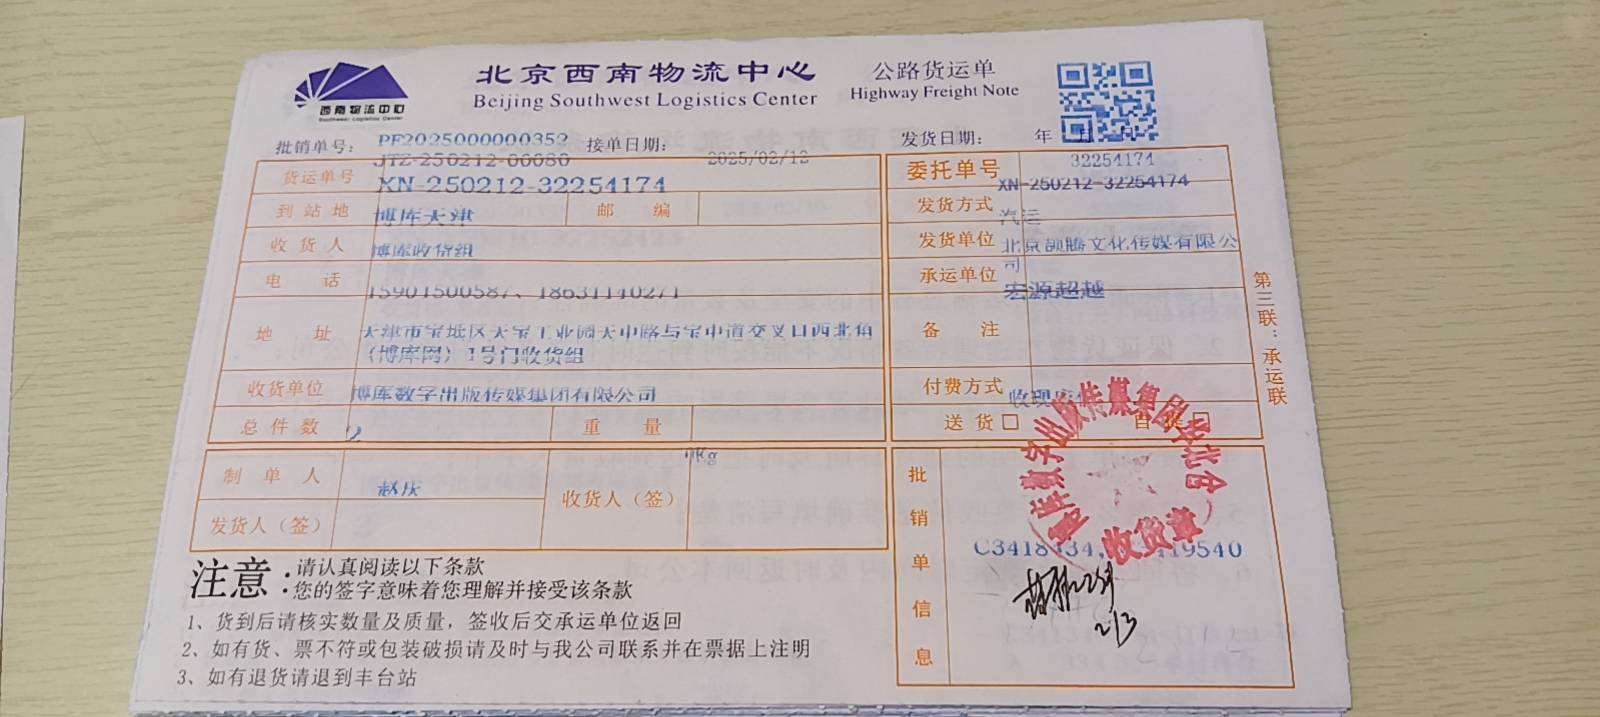 西南物流中心
Southwest Logistics Center
北京西南物流中心
Beijing Southwest Logistics Center
公路货运单
Highway Freight Note
批销单号: PF2025000000352 接单日期: 2025/02/12 发货日期: 年 月 日
JTZ-250212-00080
货运单号 XN-250212-32254174
委托单号 32254174
XN-250212-32254174
到站地 博库天津 邮编
发货方式 汽运
收货人 博库收货组
发货单位 北京颉腾文化传媒有限公司
电话 15901500587、18631140271
承运单位 宏源超越
地址 天津市宝坻区天宝工业园天中路与宝中道交叉口西北角
(博库网) 1号门收货组
备注
收货单位 博库数字出版传媒集团有限公司
付费方式
总件数 2 重量
送货□ 自提□
0Kg
制单人 赵庆
收货人(签)
发货人(签)
批销单信息
C3418434, 19540
收货章
2/3
第三联:承运联
注意:请认真阅读以下条款
您的签字意味着您理解并接受该条款
1、货到后请核实数量及质量,签收后交承运单位返回
2、如有货、票不符或包装破损请及时与我公司联系并在票据上注明
3、如有退货请退到丰台站